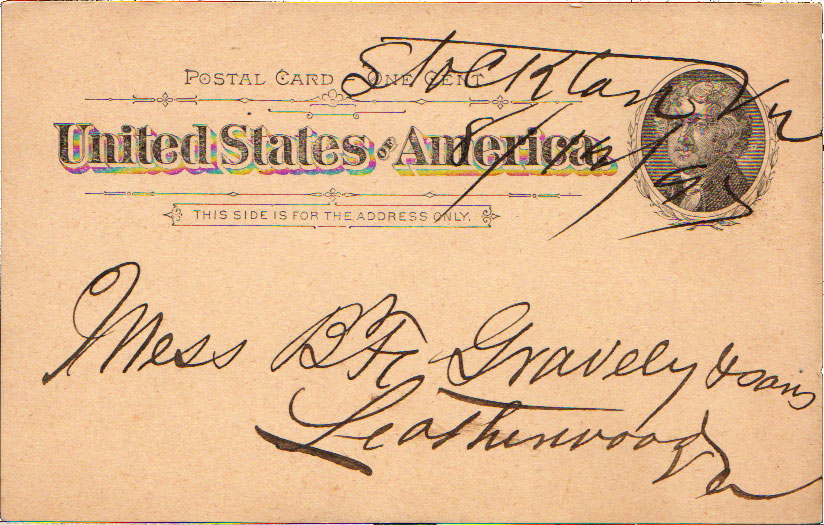 Stockton Va
POSTAL CARD – ONE CENT
8/14/95
United States of America.
THIS SIDE IS FOR THE ADDRESS ONLY.
Mess B F Gravely & sons
Leatherwood
Va